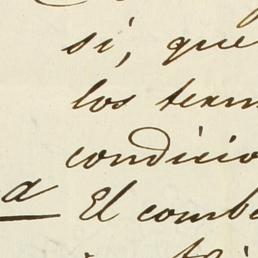 si, que
los term
condicio
a El comba